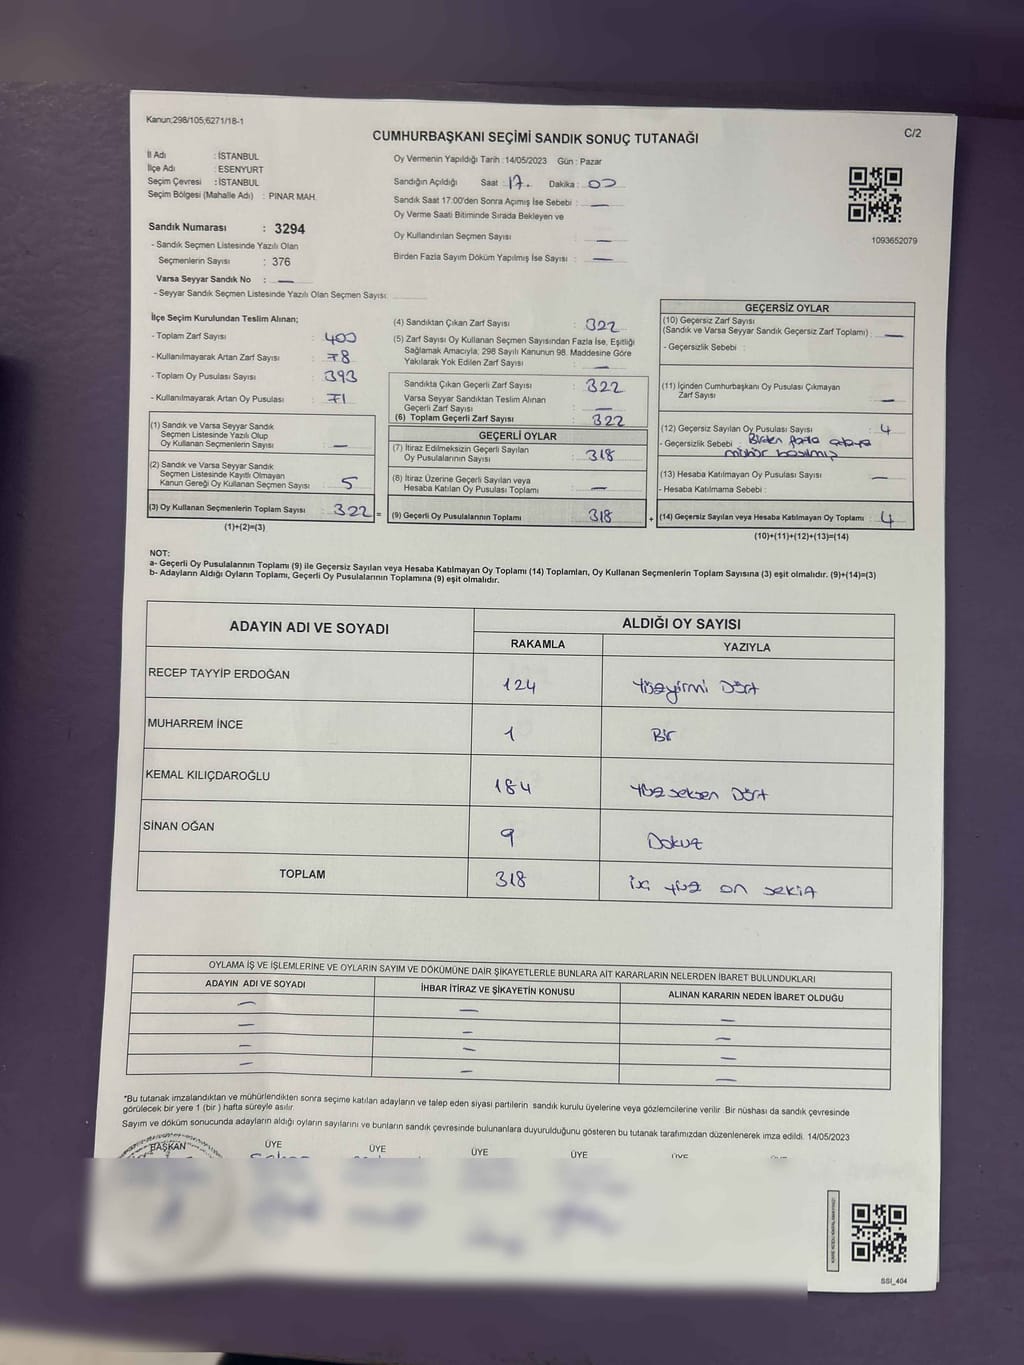 Kanun;298/105,6271/18-1
C/2
CUMHURBAŞKANI SEÇİMİ SANDIK SONUÇ TUTANAĞI
İl Adı : İSTANBUL
İlçe Adı : ESENYURT
Seçim Çevresi : İSTANBUL
Seçim Bölgesi (Mahalle Adı) : PINAR MAH.
Oy Vermenin Yapıldığı Tarih :14/05/2023 Gün : Pazar
Sandığın Açıldığı Saat : 17. Dakika : 00
Sandık Saat 17:00'den Sonra Açımış İse Sebebi : —
Oy Verme Saati Bitiminde Sırada Bekleyen ve
Oy Kullandırılan Seçmen Sayısı : —
Birden Fazla Sayım Döküm Yapılmış İse Sayısı : —
1093652079
Sandık Numarası : 3294
- Sandık Seçmen Listesinde Yazılı Olan
Seçmenlerin Sayısı : 376
Varsa Seyyar Sandık No : —
- Seyyar Sandık Seçmen Listesinde Yazılı Olan Seçmen Sayısı:
İlçe Seçim Kurulundan Teslim Alınan;
- Toplam Zarf Sayısı : 400
- Kullanılmayarak Artan Zarf Sayısı : 78
- Toplam Oy Pusulası Sayısı : 393
- Kullanılmayarak Artan Oy Pusulası : 71
(1) Sandık ve Varsa Seyyar Sandık
Seçmen Listesinde Yazılı Olup
Oy Kullanan Seçmenlerin Sayısı : —
(2) Sandık ve Varsa Seyyar Sandık
Seçmen Listesinde Kayıtlı Olmayan
Kanun Gereği Oy Kullanan Seçmen Sayısı : 5
(3) Oy Kullanan Seçmenlerin Toplam Sayısı : 322 =
(1)+(2)=(3)
(4) Sandıktan Çıkan Zarf Sayısı : 322
(5) Zarf Sayısı Oy Kullanan Seçmen Sayısından Fazla İse, Eşitliği
Sağlamak Amacıyla, 298 Sayılı Kanunun 98. Maddesine Göre
Yakılarak Yok Edilen Zarf Sayısı : —
Sandıkta Çıkan Geçerli Zarf Sayısı : 322
Varsa Seyyar Sandıktan Teslim Alınan
Geçerli Zarf Sayısı : —
(6) Toplam Geçerli Zarf Sayısı : 322
GEÇERLİ OYLAR
(7) İtiraz Edilmeksizin Geçerli Sayılan
Oy Pusulalarının Sayısı : 318
(8) İtiraz Üzerine Geçerli Sayılan veya
Hesaba Katılan Oy Pusulası Toplamı : —
(9) Geçerli Oy Pusulalarının Toplamı : 318 +
GEÇERSİZ OYLAR
(10) Geçersiz Zarf Sayısı
(Sandık ve Varsa Seyyar Sandık Geçersiz Zarf Toplamı) : —
- Geçersizlik Sebebi :
(11) İçinden Cumhurbaşkanı Oy Pusulası Çıkmayan
Zarf Sayısı : —
(12) Geçersiz Sayılan Oy Pusulası Sayısı : 4
- Geçersizlik Sebebi : Birden fazla adaya
mühür basılmış
(13) Hesaba Katılmayan Oy Pusulası Sayısı : —
- Hesaba Katılmama Sebebi :
(14) Geçersiz Sayılan veya Hesaba Katılmayan Oy Toplamı : 4
(10)+(11)+(12)+(13)=(14)
NOT:
a- Geçerli Oy Pusulalarının Toplamı (9) ile Geçersiz Sayılan veya Hesaba Katılmayan Oy Toplamı (14) Toplamları, Oy Kullanan Seçmenlerin Toplam Sayısına (3) eşit olmalıdır. (9)+(14)=(3)
b- Adayların Aldığı Oyların Toplamı, Geçerli Oy Pusulalarının Toplamına (9) eşit olmalıdır.
ADAYIN ADI VE SOYADI ALDIĞI OY SAYISI
RAKAMLA YAZIYLA
RECEP TAYYİP ERDOĞAN 124 Yüzyirmi Dört
MUHARREM İNCE 1 Bir
KEMAL KILIÇDAROĞLU 184 Yüz seksen Dört
SİNAN OĞAN 9 Dokuz
TOPLAM 318 üç yüz on sekiz
OYLAMA İŞ VE İŞLEMLERİNE VE OYLARIN SAYIM VE DÖKÜMÜNE DAİR ŞİKAYETLERLE BUNLARA AİT KARARLARIN NELERDEN İBARET BULUNDUKLARI
ADAYIN ADI VE SOYADI İHBAR İTİRAZ VE ŞİKAYETİN KONUSU ALINAN KARARIN NEDEN İBARET OLDUĞU
— — —
— — —
— — —
— — —
*Bu tutanak imzalandıktan ve mühürlendikten sonra seçime katılan adayların ve talep eden siyasi partilerin sandık kurulu üyelerine veya gözlemcilerine verilir. Bir nüshası da sandık çevresinde
görülecek bir yere 1 (bir ) hafta süreyle asılır.
Sayım ve döküm sonucunda adayların aldığı oyların sayılarını ve bunların sandık çevresinde bulunanlara duyurulduğunu gösteren bu tutanak tarafımızdan düzenlenerek imza edildi. 14/05/2023
BAŞKAN ÜYE ÜYE ÜYE ÜYE
SSI_404